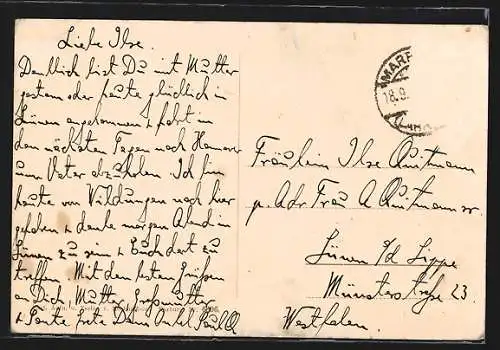 Liebe Ilse.
Du mit Mutter
gestern oder heute glücklich in
Lünen angekommen & fahrt in
den nächsten Tagen nach
um Vater abzuholen. Ich bin
heute von Wildungen nach hier
gefahren & denke morgen Abend in
Lünen zu sein & Euch dort zu
treffen. Mit den besten Grüßen
an Dich, Mutter, Großmutter
& Tante Dein Onkel Paul Q
MARB
18.9.
Fräulein Ilse Quitmann
p. Adr Frau A Quitmann sr.
Lünen a/d Lippe
Münsterstraße 23.
Westfalen.